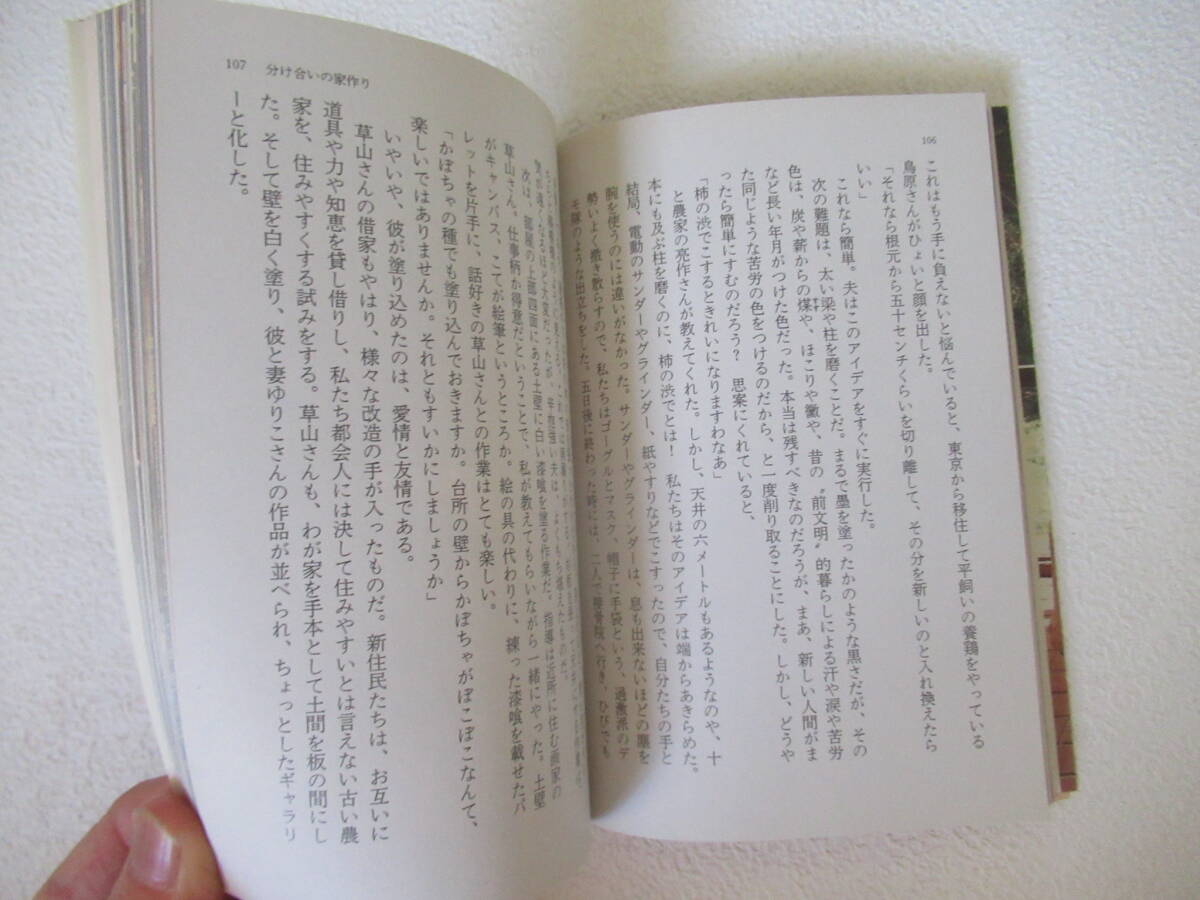 106
これはもう手に負えないと悩んでいると、東京から移住して平飼いの養鶏をやっている
鳥原さんがひょいと顔を出した。
「それなら根元から五十センチくらいを切り離して、その分を新しいのと入れ換えたら
いい」
これなら簡単。夫はこのアイデアをすぐに実行した。
次の難題は、太い梁や柱を磨くことだ。まるで墨を塗ったかのような黒さだが、その
色は、炭や薪からの煤や、ほこりや黴や、昔の〝前文明〟的暮らしによる汗や涙や苦労
など長い年月がつけた色だった。本当は残すべきなのだろうが、まあ、新しい人間がま
た同じような苦労の色をつけるのだから、と一度削り取ることにした。しかし、どうや
ったら簡単にすむのだろう？　思案にくれていると、
「柿の渋でこするときれいになりますわなあ」
と農家の亮作さんが教えてくれた。しかし、天井の六メートルもあるようなのや、十
本にも及ぶ柱を磨くのに、柿の渋でとは！　私たちはそのアイデアは端からあきらめた。
結局、電動のサンダーやグラインダー、紙やすりなどでこすったので、自分たちの手と
腕を使うのには違いがなかった。サンダーやグラインダーは、息も出来ないほどの塵を
勢いよく撒き散らすので、私たちはゴーグルとマスク、帽子に手袋という、過激派のデ
モ隊のような出立ちをした。五日後に終わった時には、二人で接骨院へ行き、ひびでも
107　分け合いの家作り
気が遠くなるほど大変だったが、辛抱強い夫は、よくもち堪えたものだ。
次は、部屋の上部四面にある土壁に白い漆喰を塗る作業だ。指導は近所に住む画家の
草山さん。仕事柄か得意だということで、私が教えてもらいながら一緒にやった。土壁
がキャンバス、こてが絵筆というところか。絵の具の代わりに、練った漆喰を載せたパ
レットを片手に、話好きの草山さんとの作業はとても楽しい。
「かぼちゃの種でも塗り込んでおきますか。台所の壁からかぼちゃがぼこぼこなんて、
楽しいではありませんか。それともすいかにしましょうか」
いやいや、彼が塗り込めたのは、愛情と友情である。
草山さんの借家もやはり、様々な改造の手が入ったものだ。新住民たちは、お互いに
道具や力や知恵を貸し借りし、私たち都会人には決して住みやすいとは言えない古い農
家を、住みやすくする試みをする。草山さんも、わが家を手本として土間を板の間にし
た。そして壁を白く塗り、彼と妻ゆりこさんの作品が並べられ、ちょっとしたギャラリ
ーと化した。